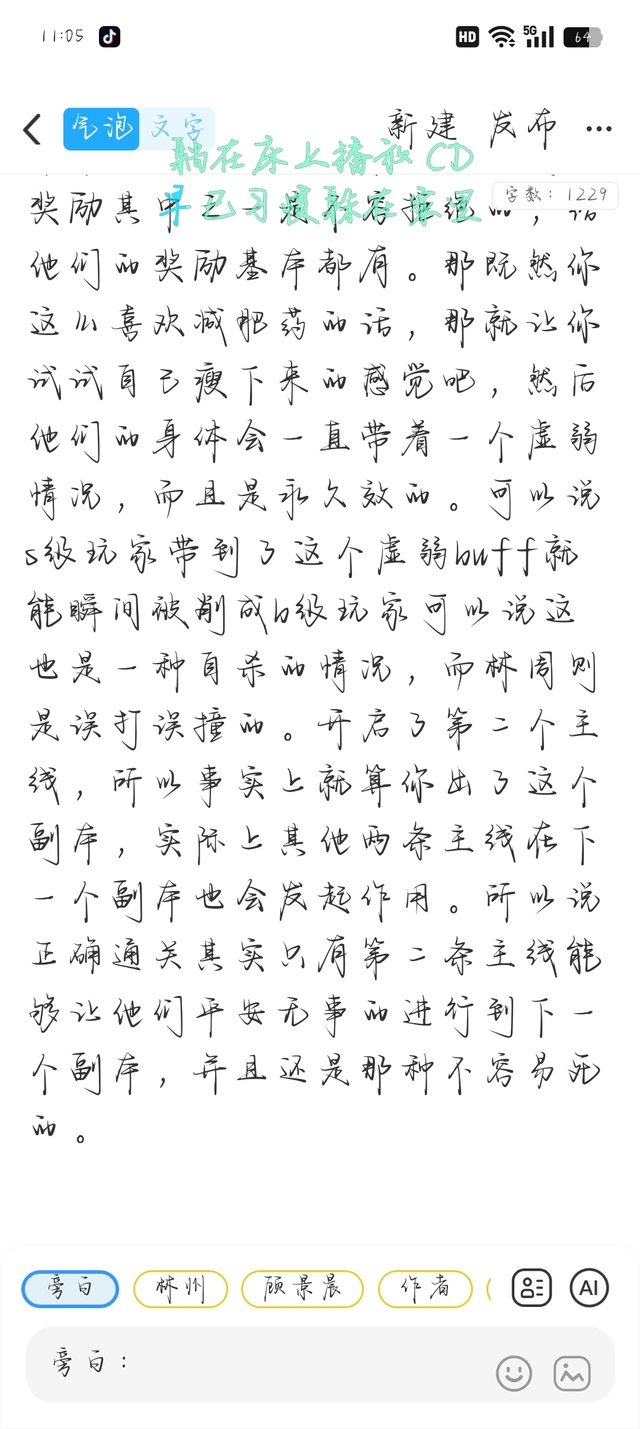 11:05 HD 5G 64
气泡 文字 新建 发布
躺在床上播放 CD
早已习惯躲在家里
字数：1229
奖励其中之一是不容拒绝的，
他们的奖励基本都有。那既然你
这么喜欢减肥药的话，那就让你
试试自己瘦下来的感觉吧，然后
他们的身体会一直带着一个虚弱
情况，而且是永久效的。可以说
s级玩家带到了这个虚弱buff就
能瞬间被削成b级玩家可以说这
也是一种自杀的情况，而林周则
是误打误撞的。开启了第二个主
线，所以事实上就算你出了这个
副本，实际上其他两条主线在下
一个副本也会发起作用。所以说
正确通关其实只有第二条主线能
够让他们平安无事的进行到下一
个副本，并且还是那种不容易死
的。
旁白 林州 顾景晨 作者 AI
旁白：